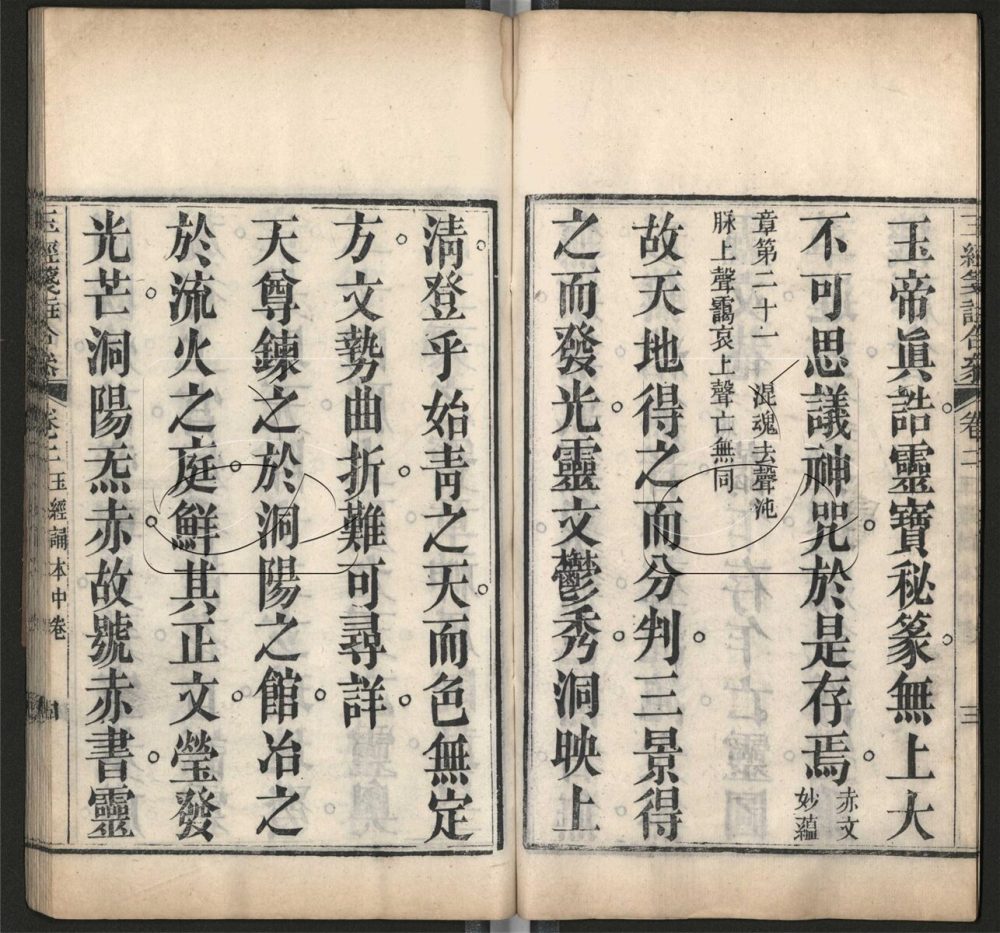 玉經箋註合纂 卷二 三
玉帝眞誥靈寶秘篆無上大
不可思議神咒於是存焉
赤文
妙蘊
章第二十一 混魂去聲沌
脉上聲靄哀上聲亡無同
故天地得之而分判三景得
之而發光靈文鬱秀洞映上
清登乎始青之天而色無定
方文勢曲折難可尋詳
天尊鍊之於洞陽之館冶之
於流火之庭鮮其正文瑩發
光芒洞陽炁赤故號赤書靈
玉經箋註合纂 卷二 玉經誦本中卷